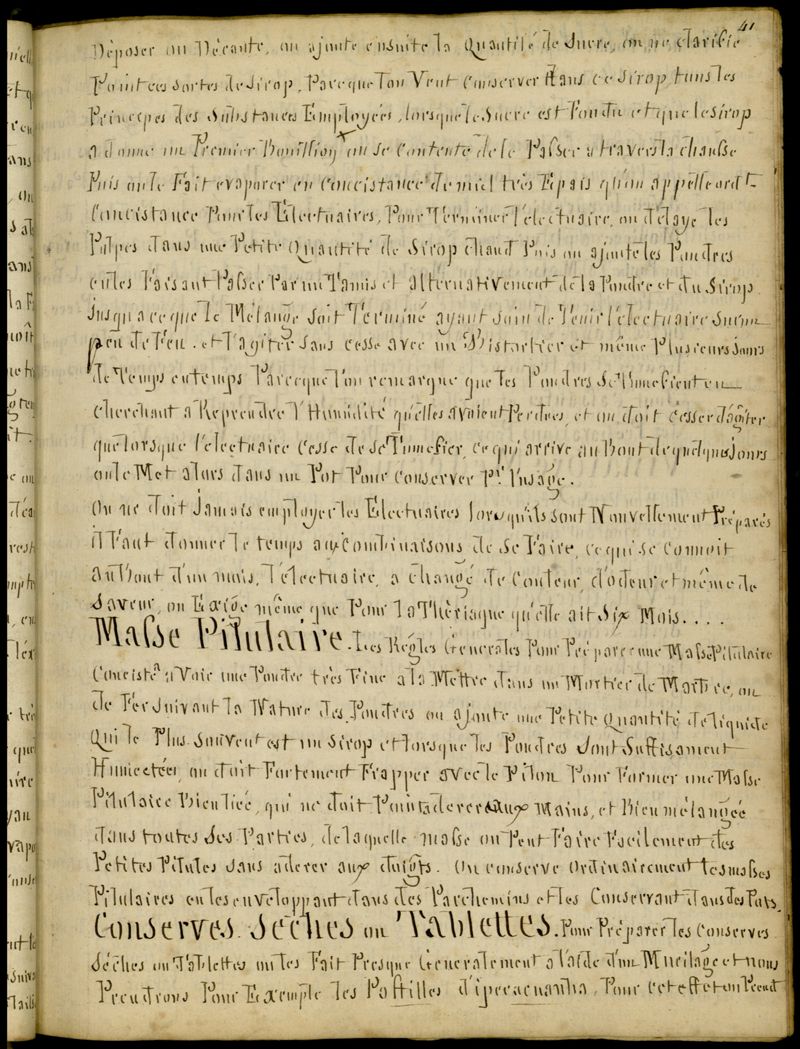 41
Deposer ou Décante, on ajoute ensuite la Quantité de Sucre, on ne clarifie
Point ces Sortes de Sirop, Parceque l'on Veut Conserver dans ce Sirop, tous les
Principes des Substances Employées, lorsque le Sucre est Fondu et que le Sirop
a donné un Premier Bouillon on se Contente de le Passer a travers la chausse
Puis on le Fait evaporer en Concistance de miel très Epais qu'on appelle ordt
Concistance Pour les Electuaires, Pour Terminer l'electuaire, on delaye les
Pulpes dans une Petite Quantité de Sirop chaud Puis on ajoute les Poudres
en les Faisant Passer Par un Tamis et alternativement de la Poudre et du Sirop
Jusqu'a ce que le Mélange Soit Terminé ayant Soin de Tenir l'electuaire Sur un
peu de Feu. et l'agiter Sans cesse avec un Bistortier et même Plusieurs Jours
de Temps en temps Parceque l'on remarque que les Poudres Se Tumefient en
Cherchant a Reprendre l'Humidité qu'elles avoient Perdues, et on doit Cesser d'agiter
que lorsque l'electuaire Cesse de Se Tumefier, ce qui arrive au Bout de quelques Jours
on le Met alors dans un Pot Pour Conserver Pr l'usage.
On ne doit Jamais employer les Electuaires lorsqu'ils sont Nouvellement Préparés
Il Faut donner le temps aux Combinaisons de Se Faire, ce qui se Connoit
au Bout d'un mois, l'electuaire, a changé de Couleur, d'odeur et même de
Saveur, on Exige même que Pour la Theriaque qu'elle ait Six Mois....
Masse Pilulaire. Les Régles Generales Pour Préparer une Masse Pilulaire
Conciste a avoir une Poudre très Fine a la Mettre dans un Mortier de Marbre, ou
de Fer Suivant la Nature des Poudres on ajoute une Petite Quantité de liquide
Qui le Plus Souvent est un Sirop et lorsque les Poudres Sont Suffisament
Humectées, on doit Fortement Frapper avec le Pilon Pour Former une Masse
Pilulaire Bien liée, qui ne doit Point aderer aux Mains, et Bien mélangée
dans toutes Ses Parties, de laquelle masse on Peut Faire Facilement des
Petites Pilules Sans aderer aux doigts. On conserve Ordinairement les masses
Pilulaires en les enveloppant dans des Parchemins et les Conservant dans des Pots.
Conserves. Séches ou Tablettes. Pour Préparer les Conserves
Séches ou Tablettes on les Fait Presque Generalement a l'aide d'un Mucilage et nous
Prendrons Pour Exemple les Pastilles d'ipecacuanha, Pour Cet effet on Prend